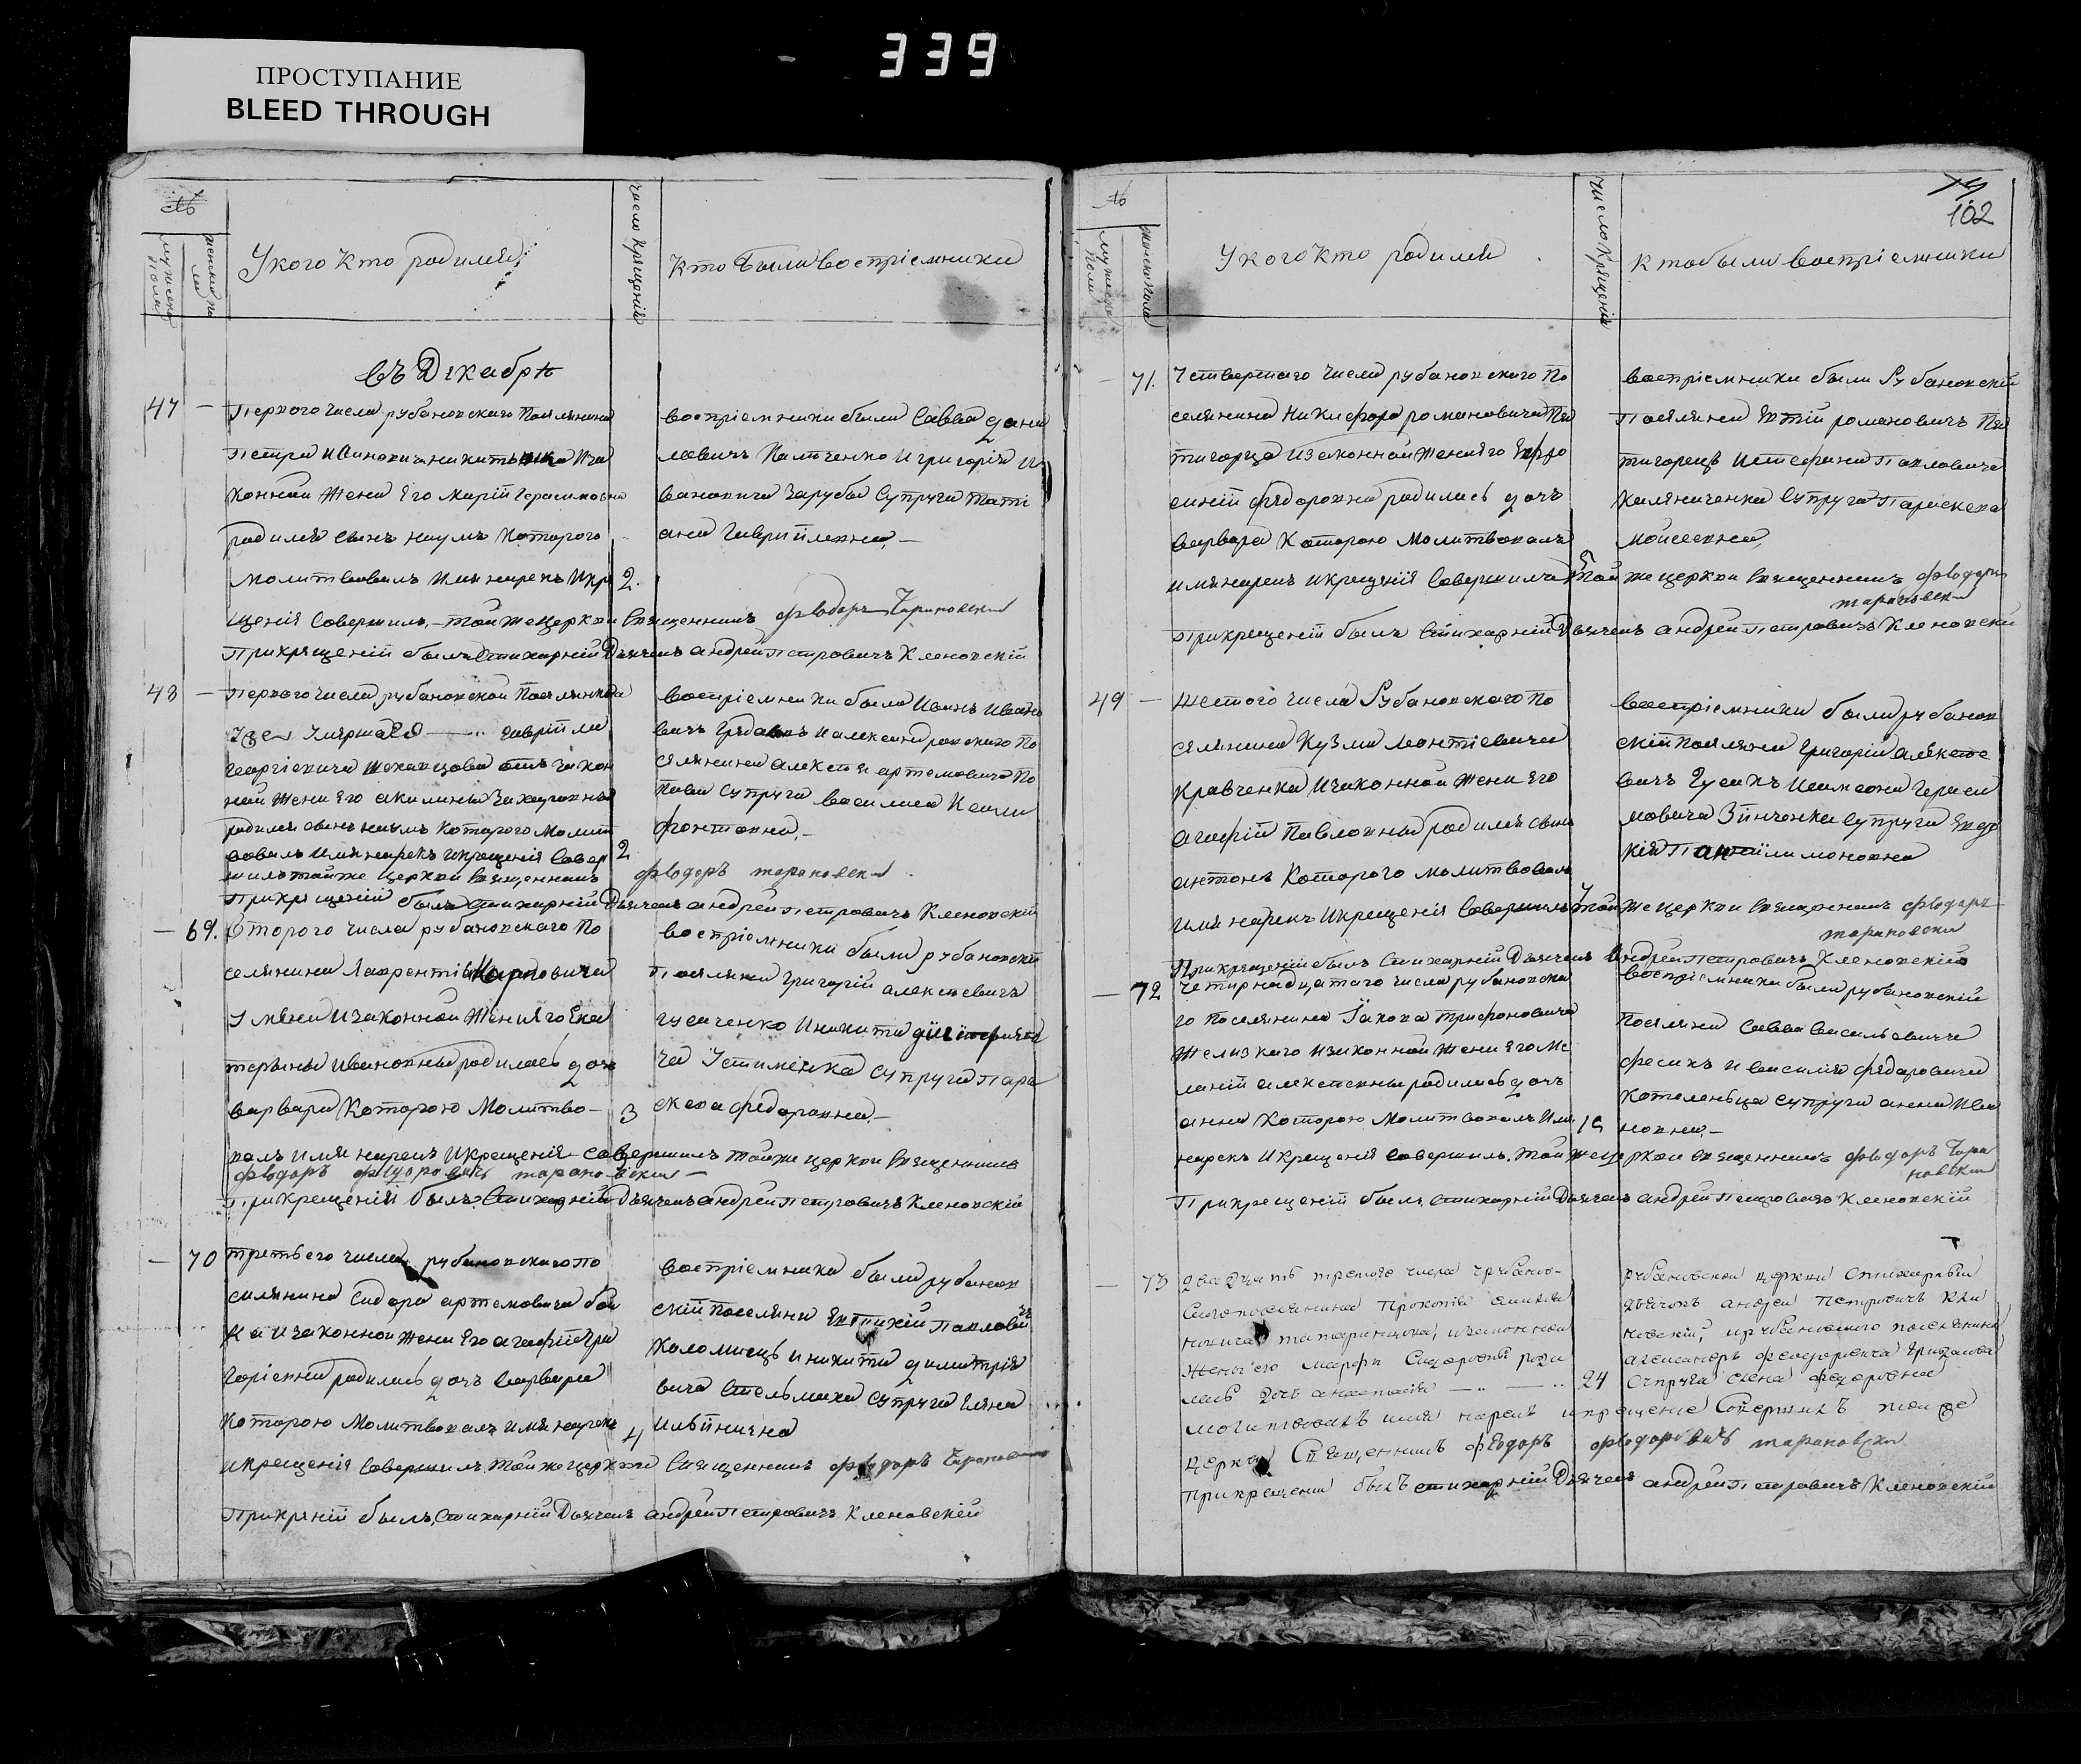 339
ПРОСТУПАНИЕ
BLEED THROUGH
№
мужеска пола
женска пола
У кого кто родился
число крещенія
кто были воспріемники
въ Декабрѣ
47 —
перваго числа рубановскаго поселянина
Петра Ивановича
конной жены его Маріи Герасимовны
родился сынъ наумъ которого
молитвовалъ имя нарекъ икре
щенія совершилъ тойже церкви священникъ фѣодоръ Тарановски
При крещеніи былъ Стихарній Дьячекъ андрей петровичъ Кленовскій
2.
воспріемники были Савва дани
ловичъ Панченко и григорія и
вановича Зарубы супруга тати
ана Гаврійловна
48 —
перваго числа рубановской поселянина
уже умерша го гаврійла
георгіевича отъ закон
ной жены его акилины Захаровны
родился сынъ наумъ которого молит
вовалъ имя нарекъ икрещенія совер
шилъ тойже церкви священникъ фѣодоръ тарановски
При крещеніи былъ стихарній Дьячекъ андрей петровичъ Кленовскій
2
воспріемники были Иванъ Ивано
вичъ и александровского по
селянина алексея артемовича По
пова супруга василиса Ксено
фонтовна
— 69.
Второго числа рубановскаго по
селянина лаврентія Карповича
и законной жени его Ека
терины Ивановны родилась дочь
варвара которою молитво
валъ имя нарекъ икрещенія совершилъ тойже церкви священникъ
фѣодоръ фѣодоровичъ тарановски
При крещеніи былъ Стихарній Дьячекъ андрей петровичъ Кленовскій
3
воспріемники были рубановскій
поселянинъ григорій алексеевичъ
гусаченко иникита димитріеви
ча Устименка супруга пара
скева федоровна
— 70
третьего числа рубановскаго по
силянина Сидора артемовича бой
ка и законной жени его агафіи гри
горіевни родилась дочъ варвара
которою молитвовалъ имя нарекъ
икрещенія совершилъ тойже церкви священникъ фѣодоръ Тарановски
При кряніи былъ Стихарній Дьячекъ андрей петровичъ Кленовскій
4
воспріемники были рубанов
скій поселянинъ Евтихій павлович
Коломиецъ и никита димитрія
вича Стельмаха супруга Еляна
ильинична
102
№
мужеска пола
женска пола
У кого кто родился
число крещенія
кто были воспріемники
— 71.
Четвертаго числа рубановскаго по
селянина Никифора романовича Пя
тигорца и законной жени его Евфро
синіи фядоровна родилась дочь
варвара которою молитвовалъ
имя нарекъ икрещенія совершилъ тойже церкви священникъ фѣодоръ
тарановски
При крещеніи былъ Стихарній Дьячекъ андрей петровичъ Кленовскій
5
воспріемники были Рубановскій
поселянинъ Евтій романовичъ Пя
тигорецъ истефана павловича
Каляниченка супруга параскева
мойсеевна
49 —
Шестого числа Рубановскаго по
селянина Кузми леонтіевича
Кравченка и законной жени его
агафіи павловны родился сынъ
антонъ которого молитвовалъ
имя нарекъ икрещенія совершилъ тойже церкви священникъ фѣодоръ
тарановски
При крещеніи былъ Стихарній Дьячекъ андрей петровичъ Кленовскій
7
воспріемники были рубанов
скій поселянинъ григорій алексе
вичъ Гусакъ и симеона гераси
мовича Зинченка супруга Евдо
кія пантилимоновна
— 72
Четирнадцатаго числа рубановска
го поселянина Іакова трифоновича
и законной жени его Ме
ланіи алексеевны родилась дочь
анна которою молитвовалъ имя
нарекъ икрещенія совершилъ тойже церкви священникъ фѣодоръ Тара
новски
При крещеніи былъ стихарній Дьячекъ андрей Петровичъ Кленовскій
воспріемники были рубановскій
поселянинъ Савва васильевичъ
фесикъ и василія фядоровича
Котеленьца супруга анна Ива
новна
— 73
двадцать третьего числа рубанов
скаго поселянина Прокопія
и законной
жены его марфы Сидоровны роди
лась дочь анастасія
молитвовалъ имя нарекъ икрещеніе совершилъ той же
церкви священникъ фѣодоръ фѣодоровичъ тарановски
При крещеніи былъ стихарній Дьячекъ андрей петровичъ Кленовскій
24
рубановской церкви стихарный
дьячокъ андрей петровичъ Кле
новскій, и рубановского поселянина
александръ феодоровича
супруга елена федоровна